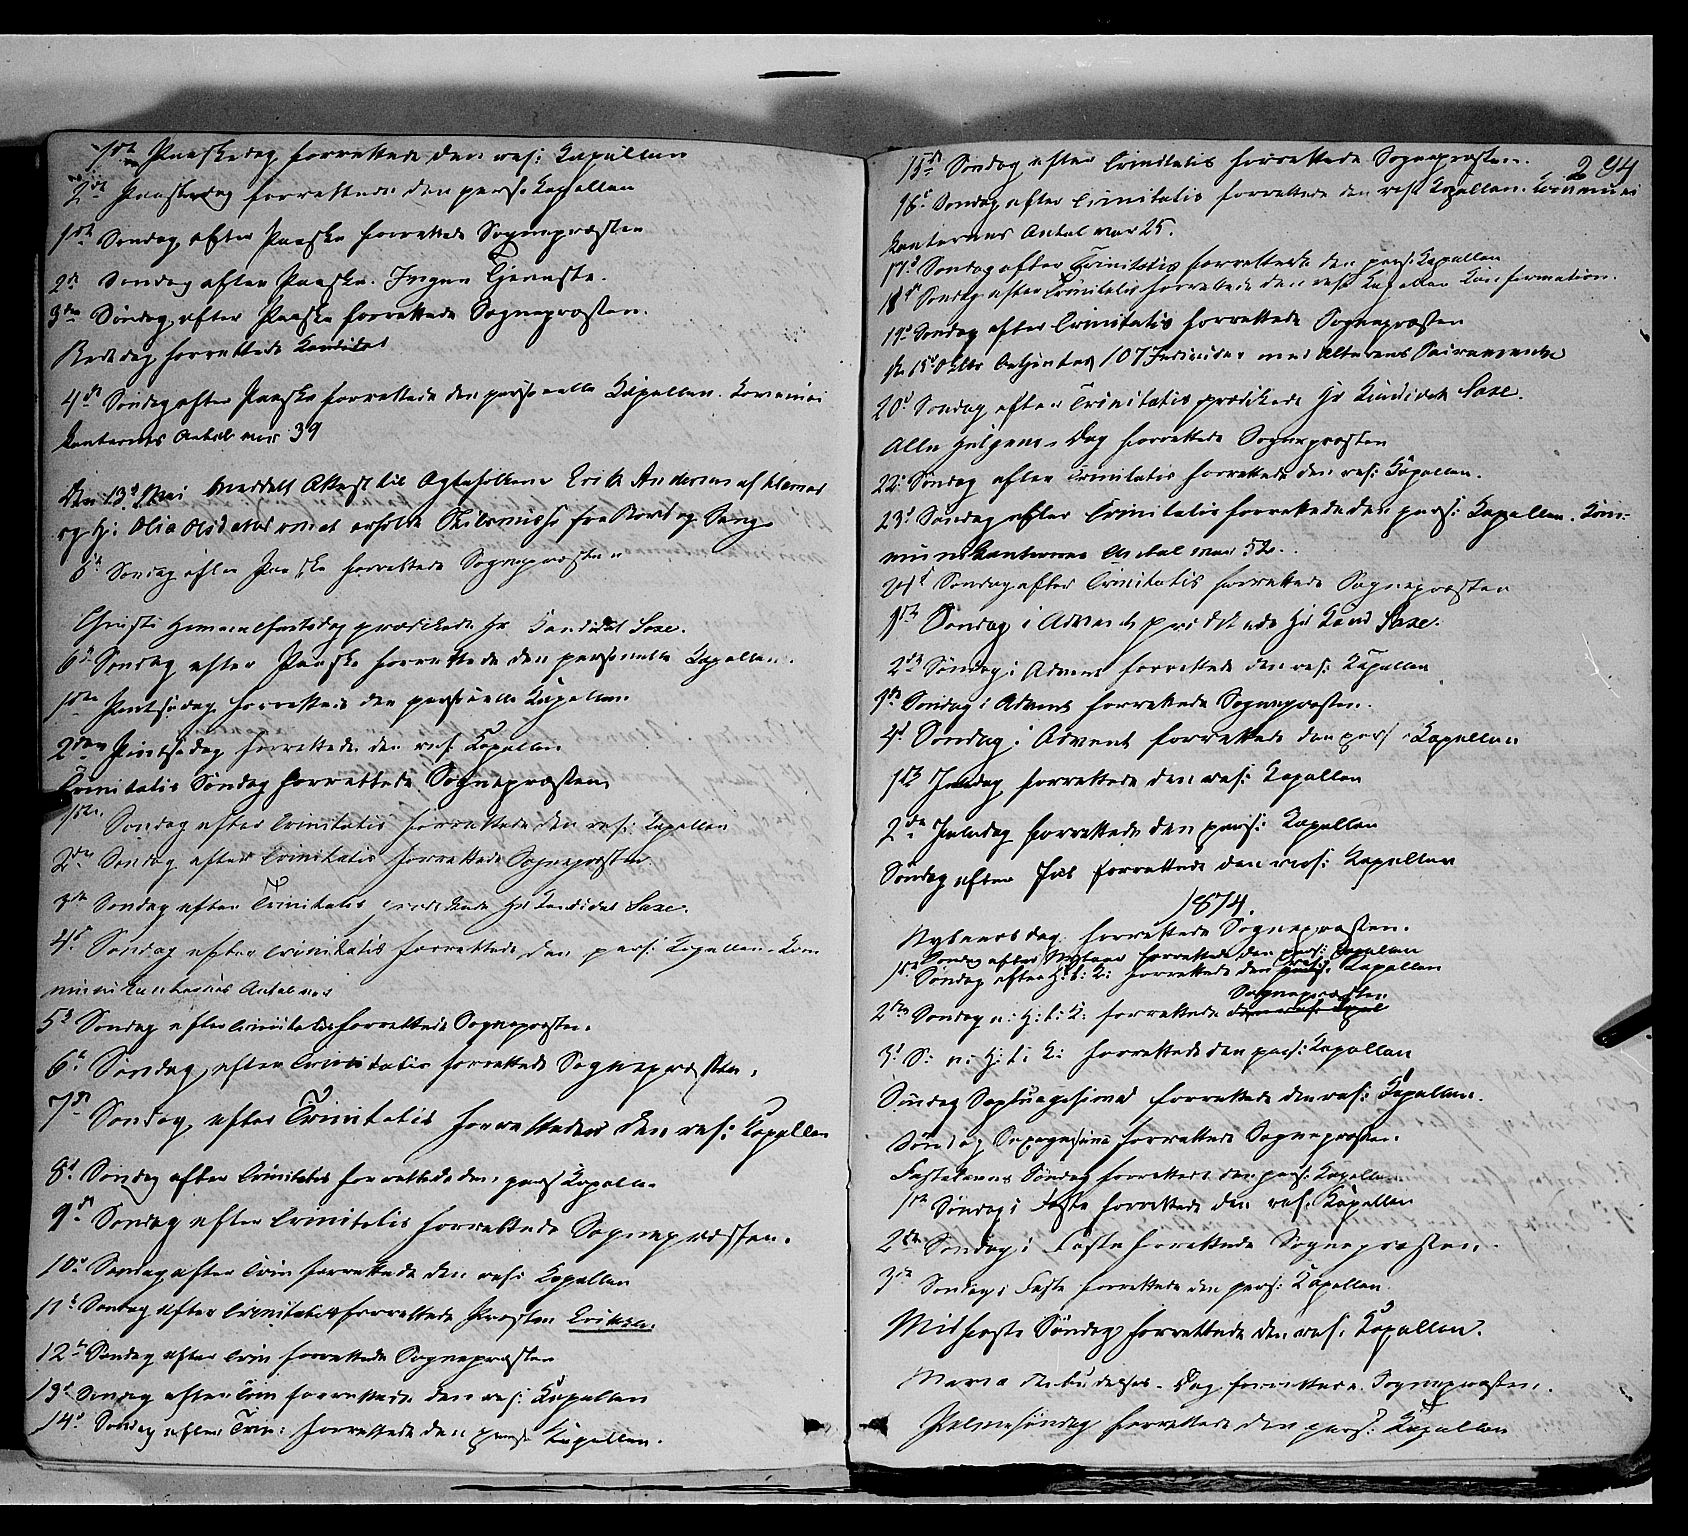 1ste Paaskedag forrettede den res: Kapellan
2den Paaskedag forrettede den pers: Kapellan
1ste Søndag efter Paaske forrettede Sognepræsten
2den Søndag efter Paaske. Ingen Tjeneste.
3die Søndag efter Paaske forrettede Sognepræsten.
Bededag forrettede Kandidat
4de Søndag efter Paaske forrettede den personelle Kapellan. Kommuni
kanternes Antal var 39
Den 13de Mai meddelt Attest til Ægtefolkene Erik Andersen af
og H: Olia Olsdatter om at erholde Skilsmisse fra Bord og Seng.
5te Søndag efter Paaske forrettede Sognepræsten
Christi Himmelfartsdag prædikede Hr Kandidat Saxe.
6te Søndag efter Paaske forrettede den personelle Kapellan.
1ste Pintsedag forrettede den personelle Kapellan.
2den Pintsedag forrettede den res. Kapellan
Trinitatis Søndag forrettede Sognepræsten
1ste Søndag efter Trinitatis forrettede den res: Kapellan
2den Søndag efter Trinitatis forrettede Sognepræsten
3die Søndag efter Trinitatis prædikede Hr Kandidat Saxe.
4de Søndag efter Trinitatis forrettede den pers: Kapellan. Kom
munikanternes Antal var
5te Søndag efter Trinitatis forrettede Sognepræsten.
6te Søndag efter Trinitatis forrettede Sognepræsten.
7de Søndag efter Trinitatis forrettede den res: Kapellan
8de Søndag efter Trinitatis forrettede den pers Kapellan
9de Søndag efter Trinitatis forrettede Sognepræsten.
10de Søndag efter Trin forrettede den res: Kapellan
11te Søndag efter Trinitatis forrettede Præsten Eriksen.
12te Søndag efter Trin forrettede Sognepræsten
13de Søndag efter Trin forrettede den res: Kapellan
14de Søndag efter Trin: forrettede den pers. Kapellan.
294
15de Søndag efter Trinitatis forrettede Sognepræsten.
16de Søndag efter Trinitatis forrettede den res. Kapellan. Kommuni
kanternes Antal var 25.
17de Søndag efter Trinitatis forrettede den pers: Kapellan
18de Søndag efter Trinitatis forrettede den res: Kapellan Konfirmation.
19de Søndag efter Trinitatis forrettede Sognepræsten
15de Oktbr betjentes 107 Individer med Alterens Sacramente
20de Søndag efter Trinitatis prædikede Hr Kandidat Saxe.
Alle Helgens Dag forrettede Sognepræsten
22de Søndag efter Trinitatis forrettede den res: Kapellan.
23de Søndag efter Trinitatis forrettede den pers: Kapellan. Kom-
munikanternes Antal var 52.
24de Søndag efter Trinitatis forrettede Sognepræsten
1ste Søndag i Advent prædikede Hr Kand Saxe.
2den Søndag i Advent forrettede den res: Kapellan
3die Søndag i Advent forrettede Sognepræsten.
4de Søndag i Advent forrettede den pers: Kapellan
1ste Juledag forrettede den res: Kapellan
2den Juledag forrettede den pers: Kapellan
Søndag efter Jul forrettede den res: Kapellan
1874.
Nytaarsdag forrettede Sognepræsten.
Søndag efter Nytaar forrettede den pers: Kapellan
1ste Søndag efter H: t: K: forrettede den res: Kapellan
Sognepræsten
2den Søndag e: H: t: K: forrettede den res: Kapel
3die S: e: H: t: K: forrettede den pers: Kapellan
Søndag Septuagesima forrettede den res: Kapellan.
Søndag Sexagesima forrettede Sognepræsten.
Fastelavns Søndag forrettede den pers: Kapellan
1ste Søndag i Faste forrettede den res: Kapellan
2den Søndag i Faste forrettede Sognepræsten.
3die Søndag i Faste forrettede den pers: Kapellan.
Midfaste Søndag forrettede den res: Kapellan.
Maria Bebudelses-Dag forrettede Sognepræsten.
Palmesøndag forrettede den pers: Kapellan